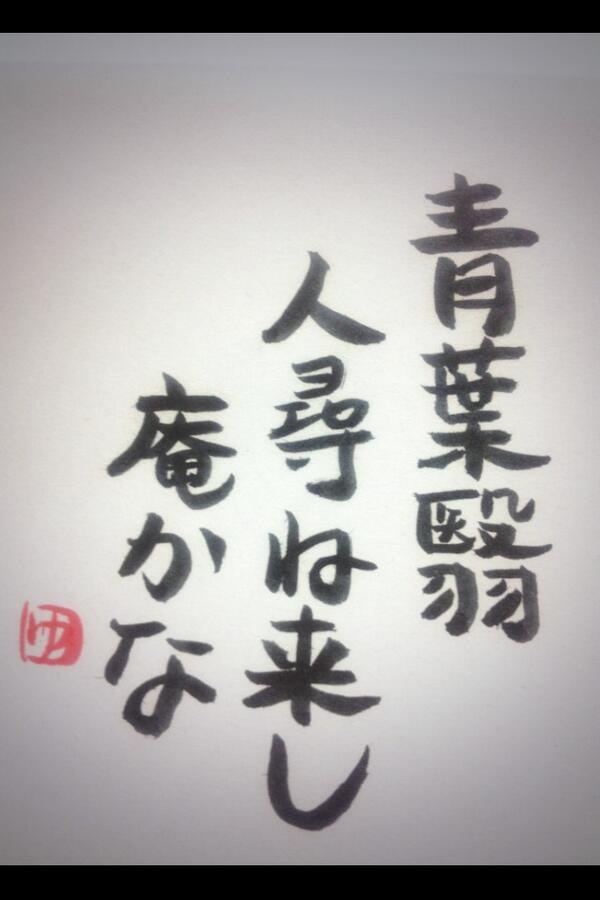 青葉翳
人尋ね来し
庵かな
ゆ